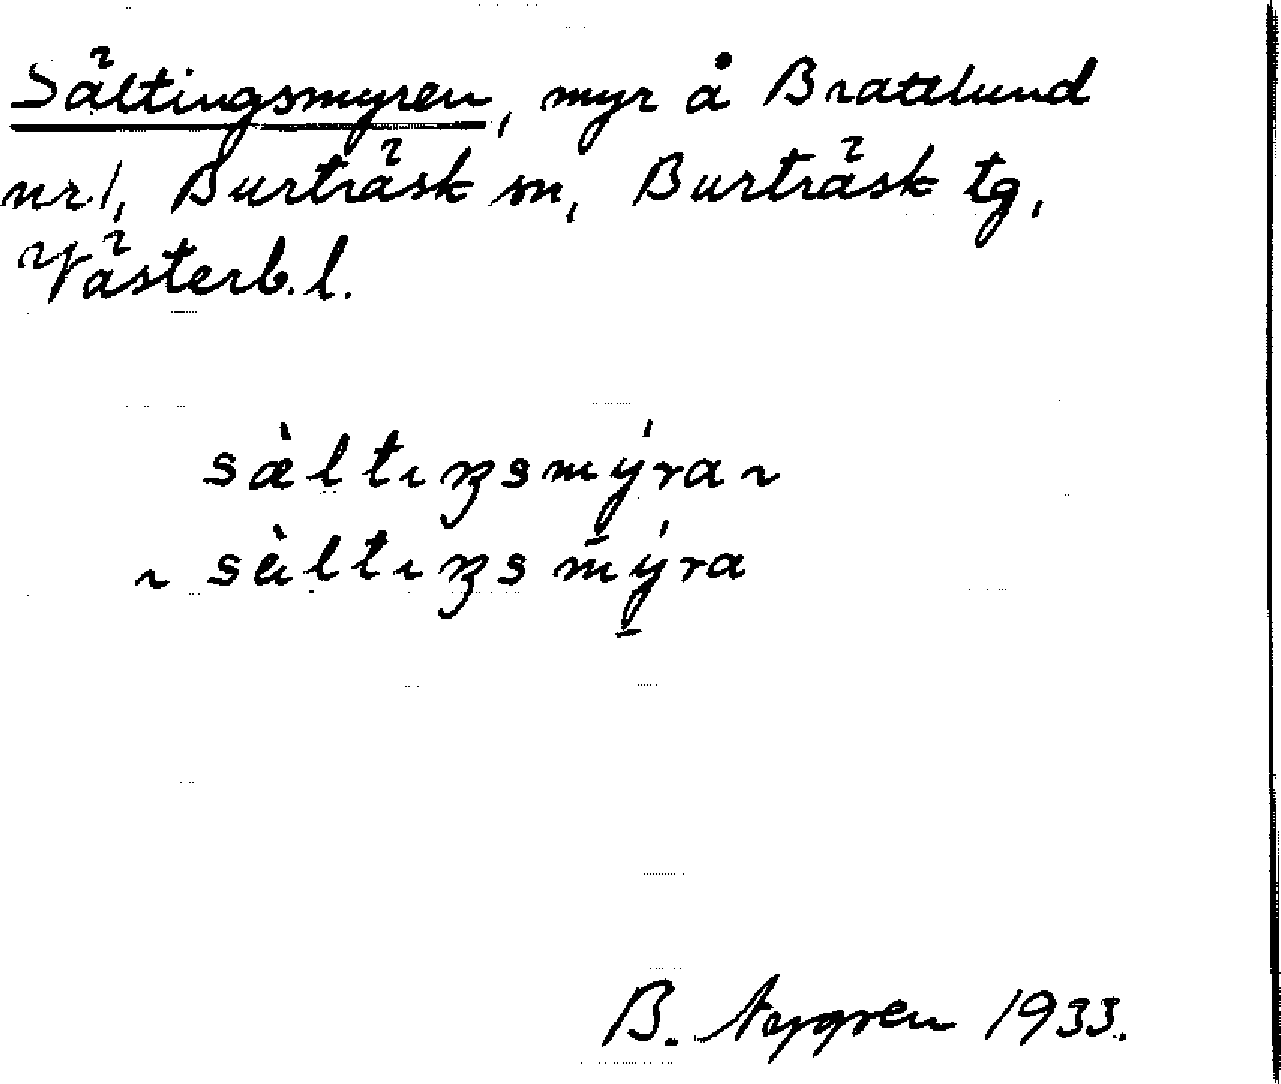 Sältingsmyren, myr å Brattlund
nr 1, Burträsk sn, Burträsk tg,
Västerb. l.
sæ̀ltıŋsmýra ~
~ sæ̀ltıŋsmýra
B. Nygren 1933.